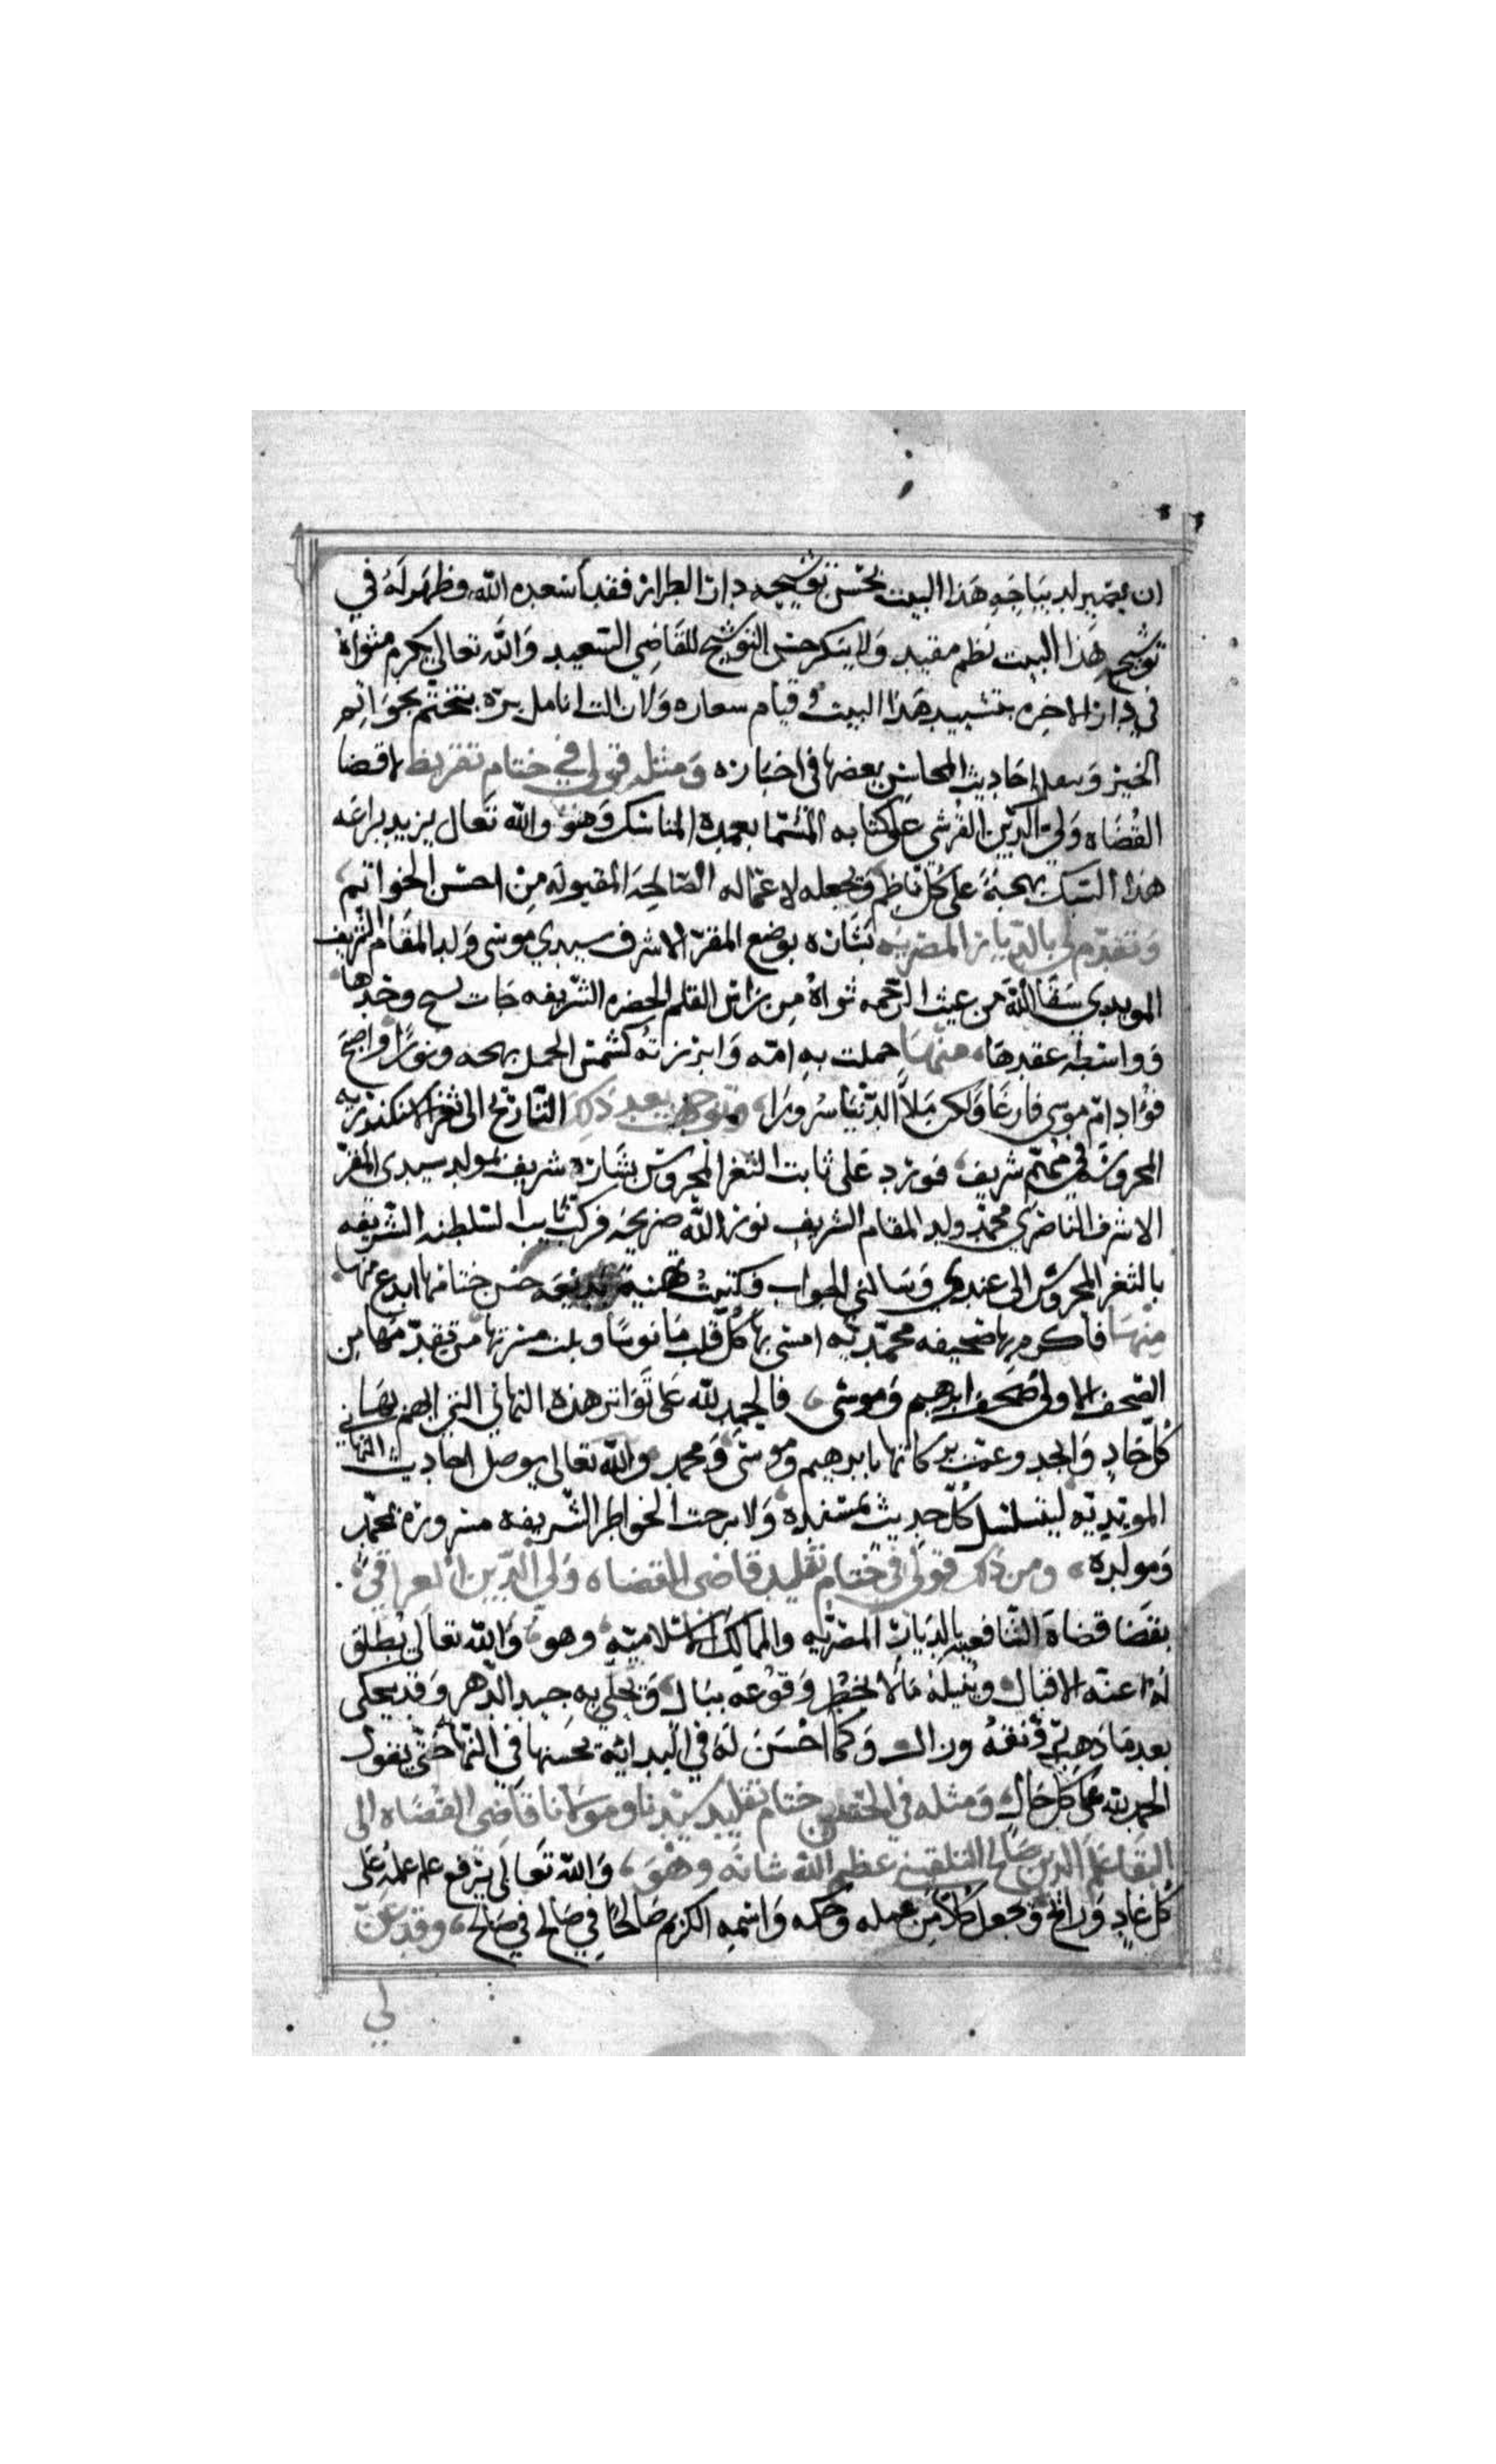 ان يصير لديباجه هذا البيت بحسن توشيحه دار الطراز فقد اسعده الله وظهر له في
توشيح هذا البيت نظم مفيد ولا ينكر حسن التوشيح للقاضي السعيد والله تعالى يكرم مثواه
في دار الاخره بتشييد هذا البيت و قيام سعاره ولا زالت انامل بره تتختم بخواتم
الخير ويعد احاديث المحاسن بعضها في اخباره ومثله قولي في ختام تقريظ لاقضا
القضاه ولي الدين القرشي على كتابه المسما بعمدة المناسك وهو والله تعال يزيد براعه
هذا السبك بهجة على كل ناظم ويجعله لاعماله الصالحه المقبوله من احسن الخواتم
وتقدم لي بالديار المصريه بشاره بوضع المقر الاشرف سيدي موسى ولد المقام الشريف
المويدي سقا الله من غيث الرحمه ثراه من براس القلم الحضره الشريفه جات نسيج وحدها
وواسطه عقدها، منها حملت به امه وابرزته كشمس الحمل بهجه ونورا واصبح
فؤاد ام موسى فارغا ولكن ملأ الدنيا سرورا، وتوجهت بعد ذلك التاريخ الى ثغر الاسكندريه
المحروسه في مهم شريف، فورد على نايب الثغر المحروس بشاره شريفه بمولد سيدي المقر
الاشرف الناصري محمد ولد المقام الشريف نور الله ضريحه فركب نايب السلطنه الشريفه
بالثغر المحروس الى عندي وسالني الجواب فكتبت تهنية بديعه حسن ختامها ابدع منها
منها فاكرم بها صحيفه محمديه امسى بها كل قلب مانوسا وبلت مسرتها من تقدمها من
الصحف الاولى صحف ابرهيم وموسى، فالحمد لله على تواتر هذه التهاني التي ابهم بها في
كل حاد وانجد وعمت بركاتها بابرهيم وموسى ومحمد والله تعالى يوصل احاديث التهاني
المويديه ليتسلسل كل حديث بمسنده ولا برحت الخواطر الشريفه مسروره بمحمد
ومولده، ومن ذلك قولي في ختام تقليد قاضي القضاه ولي الدين العراقي
بقضا قضاة الشافعيه بالديار المصريه والممالك الاسلاميه، وهو، والله تعالى يطلق
له اعنه الاقبال وينيله مالا يخطر وقوعه ببال ويحلي به جيد الدهر وقد يحلى
بعد ما ذهب رونقه وزال وكما احسن له في البداية يحسنها في النهايه حتى نقول
الحمد لله على كل حال ومثله في الحسن ختام تقليد سيدنا ومولانا قاضي القضاه ابي
البقا علم الدين صالح البلقيني عظم الله شانه وهو، والله تعالى يرفع علم علمه على
كل غاد ورائح ويجعل كلا من عمله وحكمه واسمه الكريم صالحا في صالح في صالح، وقد عن
لي